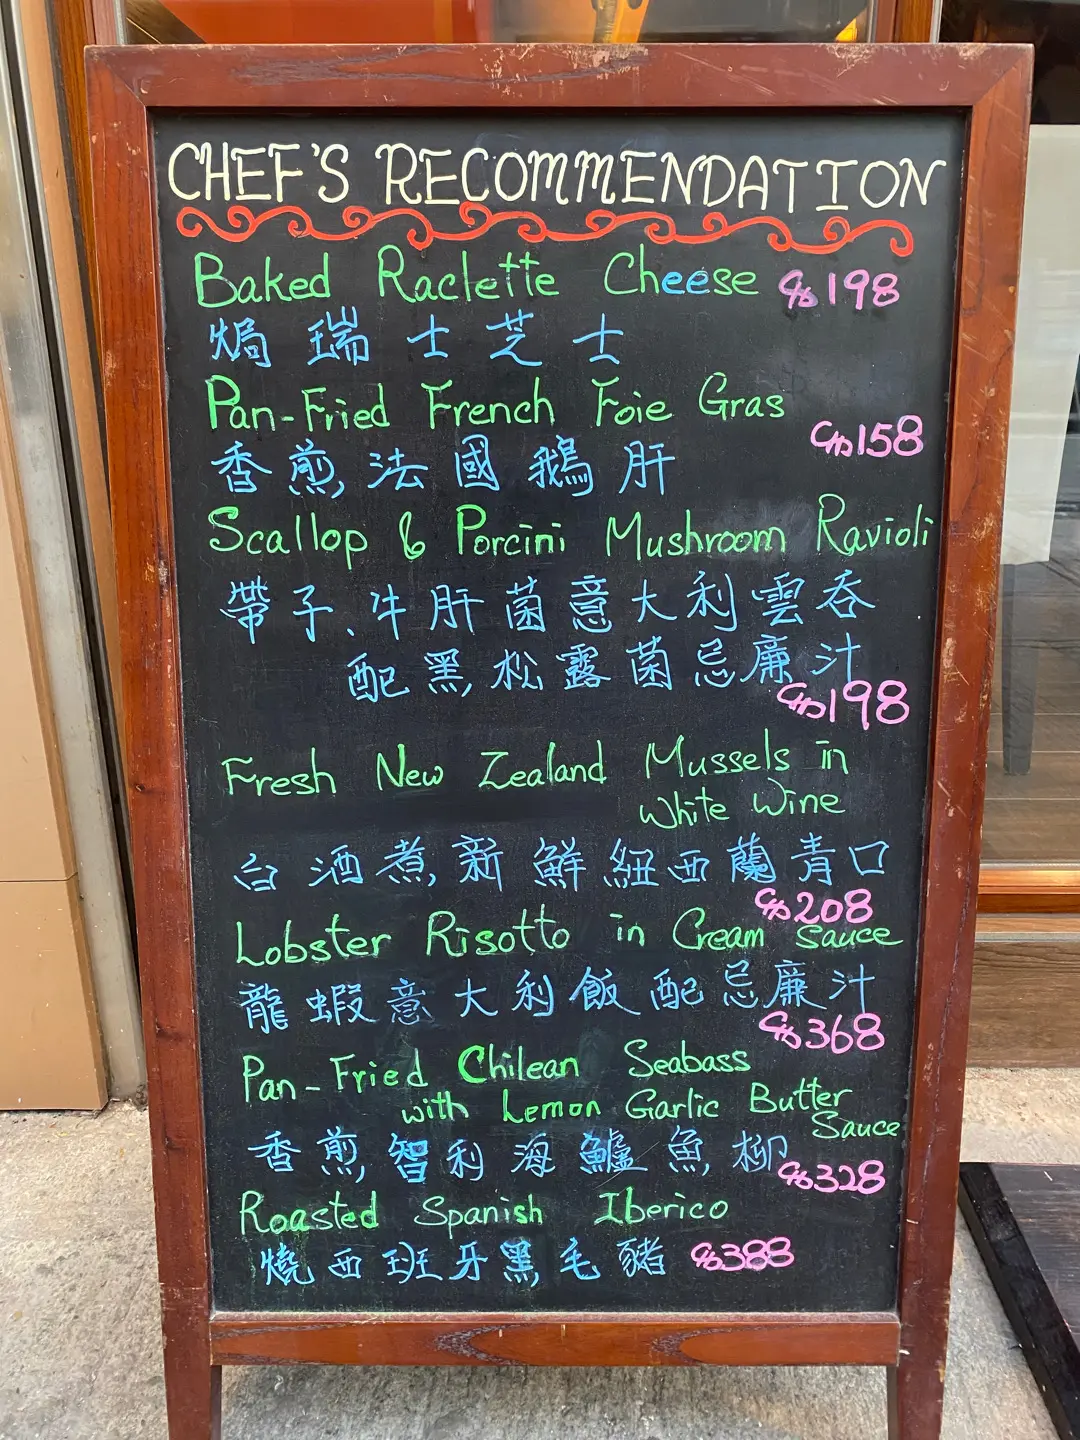 CHEF'S RECOMMENDATION
Baked Raclette Cheese $198
焗瑞士芝士
Pan-Fried French Foie Gras
$158
香煎法國鵝肝
Scallop & Porcini Mushroom Ravioli
帶子、牛肝菌意大利雲吞
配黑松露菌忌廉汁
$198
Fresh New Zealand Mussels in
White Wine
白酒煮新鮮紐西蘭青口
$208
Lobster Risotto in Cream Sauce
龍蝦意大利飯配忌廉汁
$368
Pan-Fried Chilean Seabass
with Lemon Garlic Butter
Sauce
香煎智利海鱸魚柳
$328
Roasted Spanish Iberico
燒西班牙黑毛豬 $388